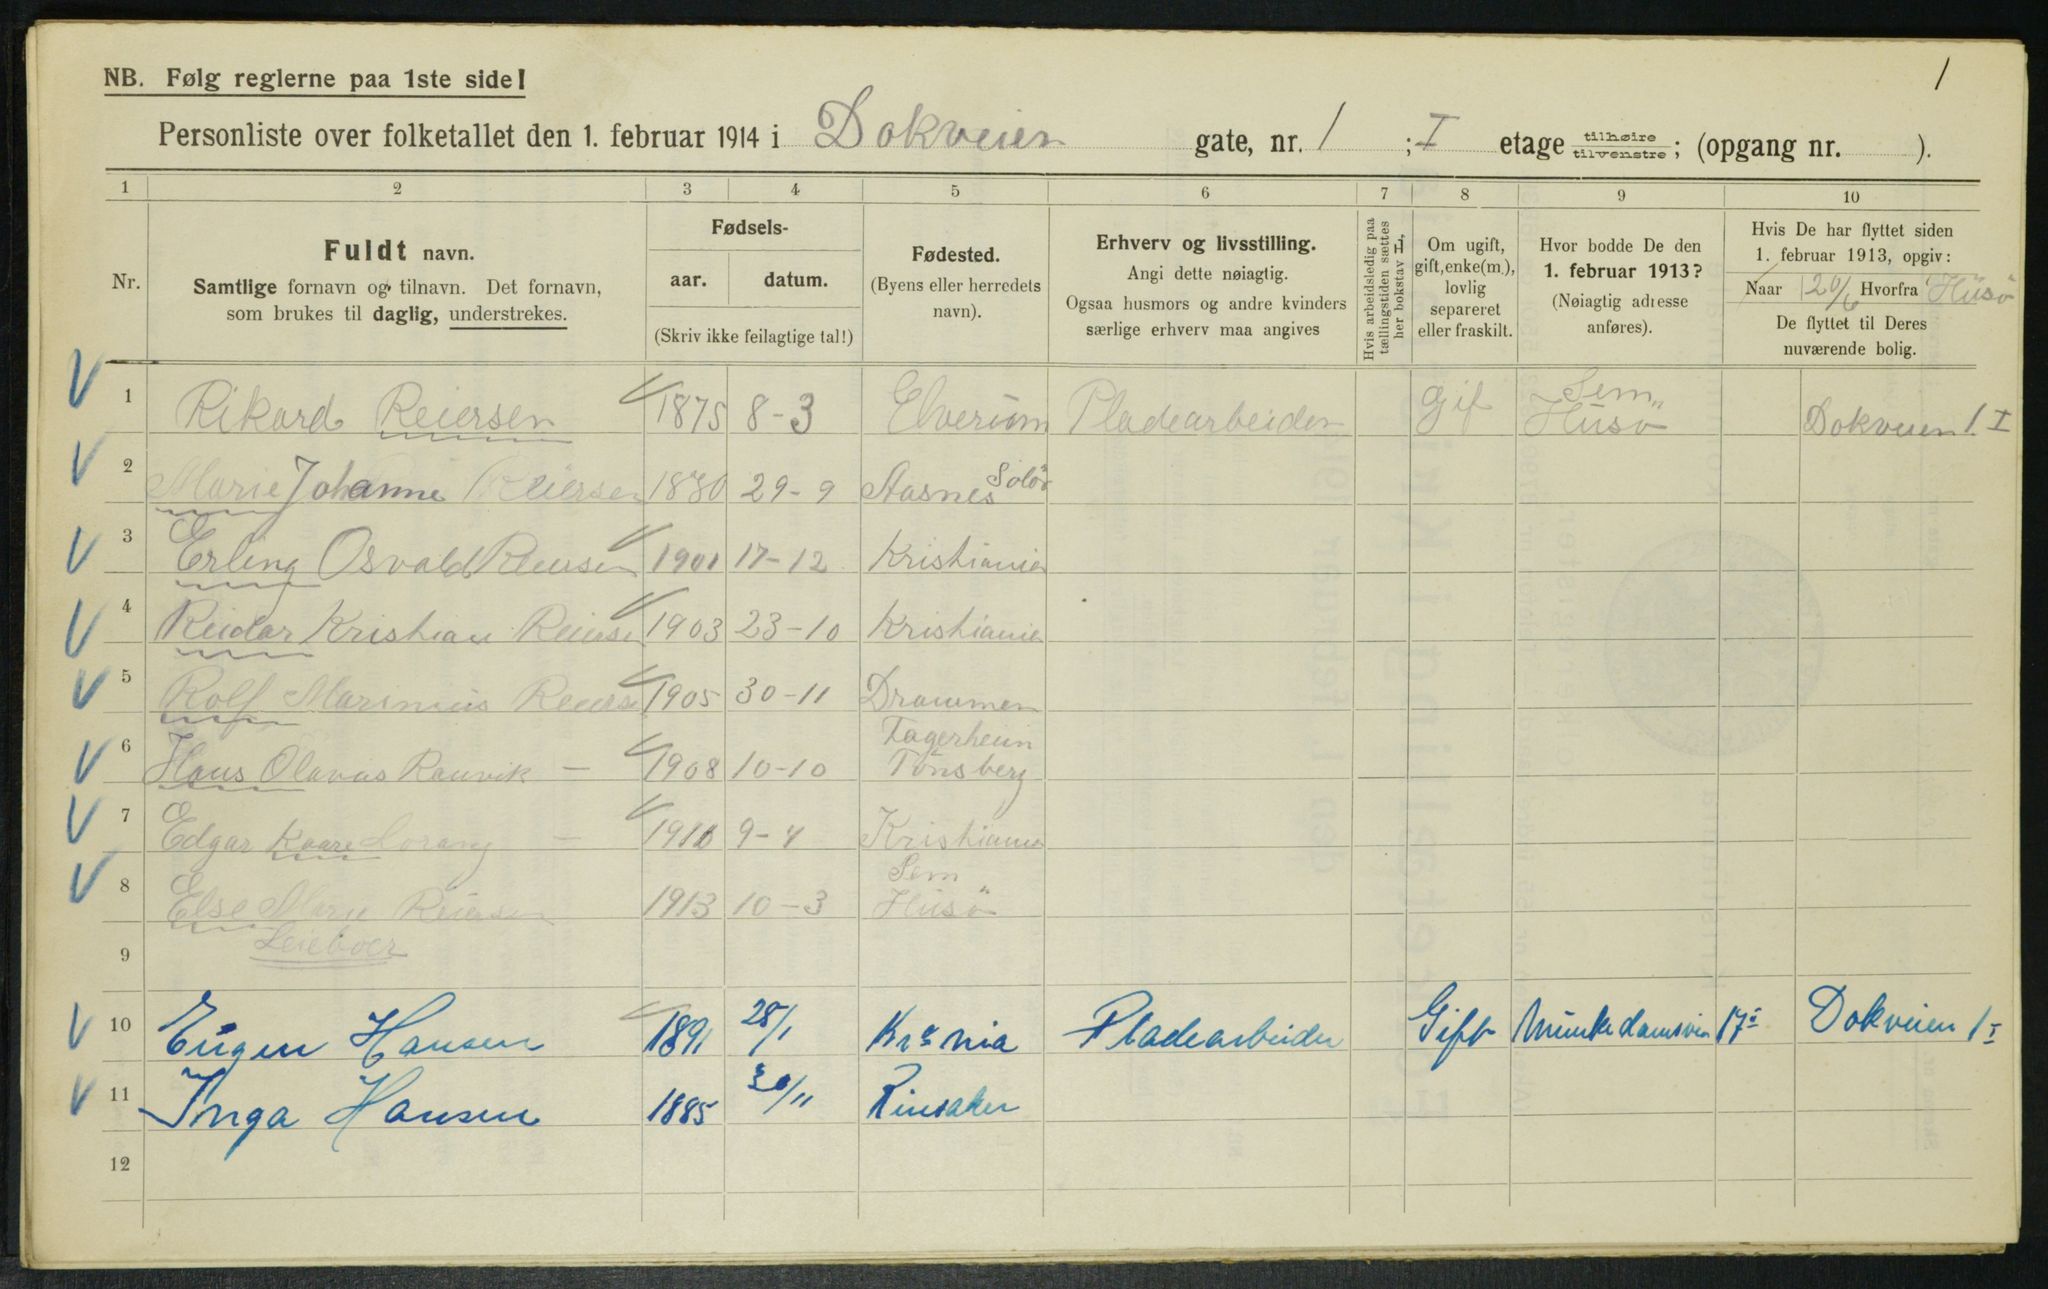 1
NB. Følg reglerne paa 1ste side!
Personliste over folketallet den 1. februar 1914 i Dokveien gate, nr. 1 ; I etage tilhøire tilvenstre; (opgang nr. ).
1 2 3 4 5 6 7 8 9 10
Nr.
Fuldt navn.
Samtlige fornavn og tilnavn. Det fornavn,
som brukes til daglig, understrekes.
Fødsels-
aar. datum.
(Skriv ikke feilagtige tal!)
Fødested.
(Byens eller herredets
navn).
Erhverv og livsstilling.
Angi dette nøiagtig.
Ogsaa husmors og andre kvinders
særlige erhverv maa angives
Hvis arbeidsledig paa
tællingstiden sættes
her bokstav H,
Om ugift,
gift, enke(m.),
lovlig
separeret
eller fraskilt.
Hvor bodde De den
1. februar 1913?
(Nøiagtig adresse
anføres).
Hvis De har flyttet siden
1. februar 1913, opgiv:
Naar 20/6 Hvorfra Husö
De flyttet til Deres
nuværende bolig.
1 Rikard Reiersen 1875 8-3 Elverum Pladearbeider Gif Sem Husö Dokveien 1. I
2 Marie Johanne Reiersen 1880 29-9 Aasnes Solör
3 Erling Osvald Reiersen 1901 17-12 Kristiania
4 Reidar Kristian Reierse 1903 23-10 Kristiania
5 Rolf Marinius Reierse 1905 30-11 Drammen
6 Hans Olavus Ranvik — 1908 10-10 Fagerheim Tönsberg
7 Edgar Kaare Lorang — 1911 9-4 Kristiania
8 Else Marie Reiersen 1913 10-3 Sem Husö
9 Leieboer
10 Eugen Hansen 1891 28/1 Kr a nia Pladearbeider Gift Munkedamsvei 17 I Dokveien 1 I
11 Inga Hansen 1885 30/11 Rinsaker
12